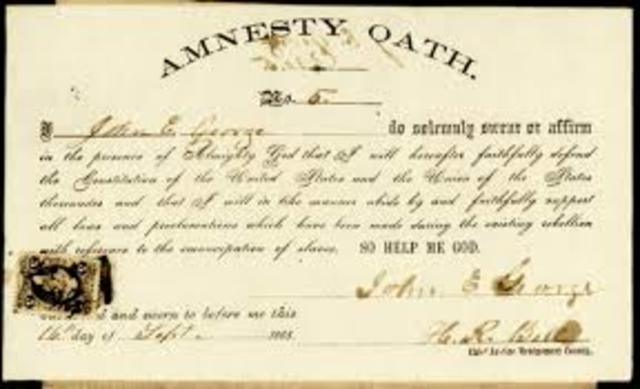 AMNESTY OATH.
No. 5.
I John E. George do solemnly swear or affirm
in the presence of Almighty God that I will hereafter faithfully defend
the Constitution of the United States and the Union of the States
thereunder and that I will in like manner abide by and faithfully support
all laws and proclamations which have been made during the existing rebellion
with reference to the emancipation of slaves. SO HELP ME GOD.
John E George
and sworn to before me this
16th day of Sept. 1865
H. R. Bell
Montgomery County.